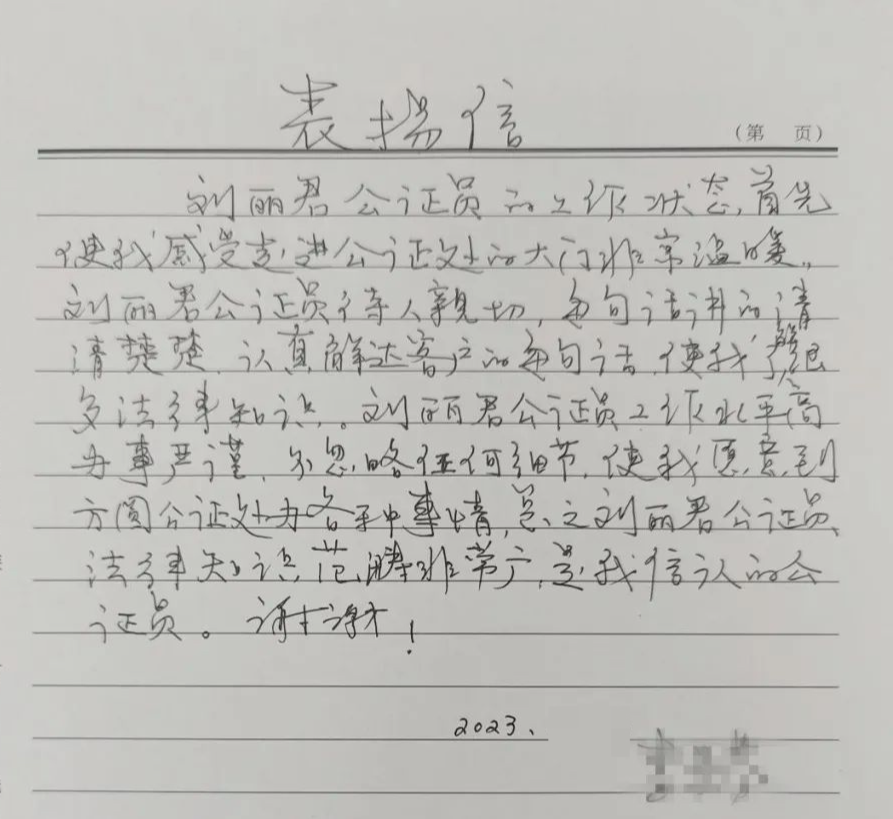 表扬信
(第 页)
刘丽君公证员的工作状态,首先
使我感受走进公证处的大门非常温暖。
刘丽君公证员待人亲切,每句话讲的清
清楚楚,认真解达客户的每句话,使我了解很
多法律知识。刘丽君公证员工作水平高
办事严谨,不忽略任何细节,使我愿意到
方圆公证处办各种事情,总之刘丽君公证员、
法律知识范畴非常广,是我信认的公
证员。谢谢!
2023、